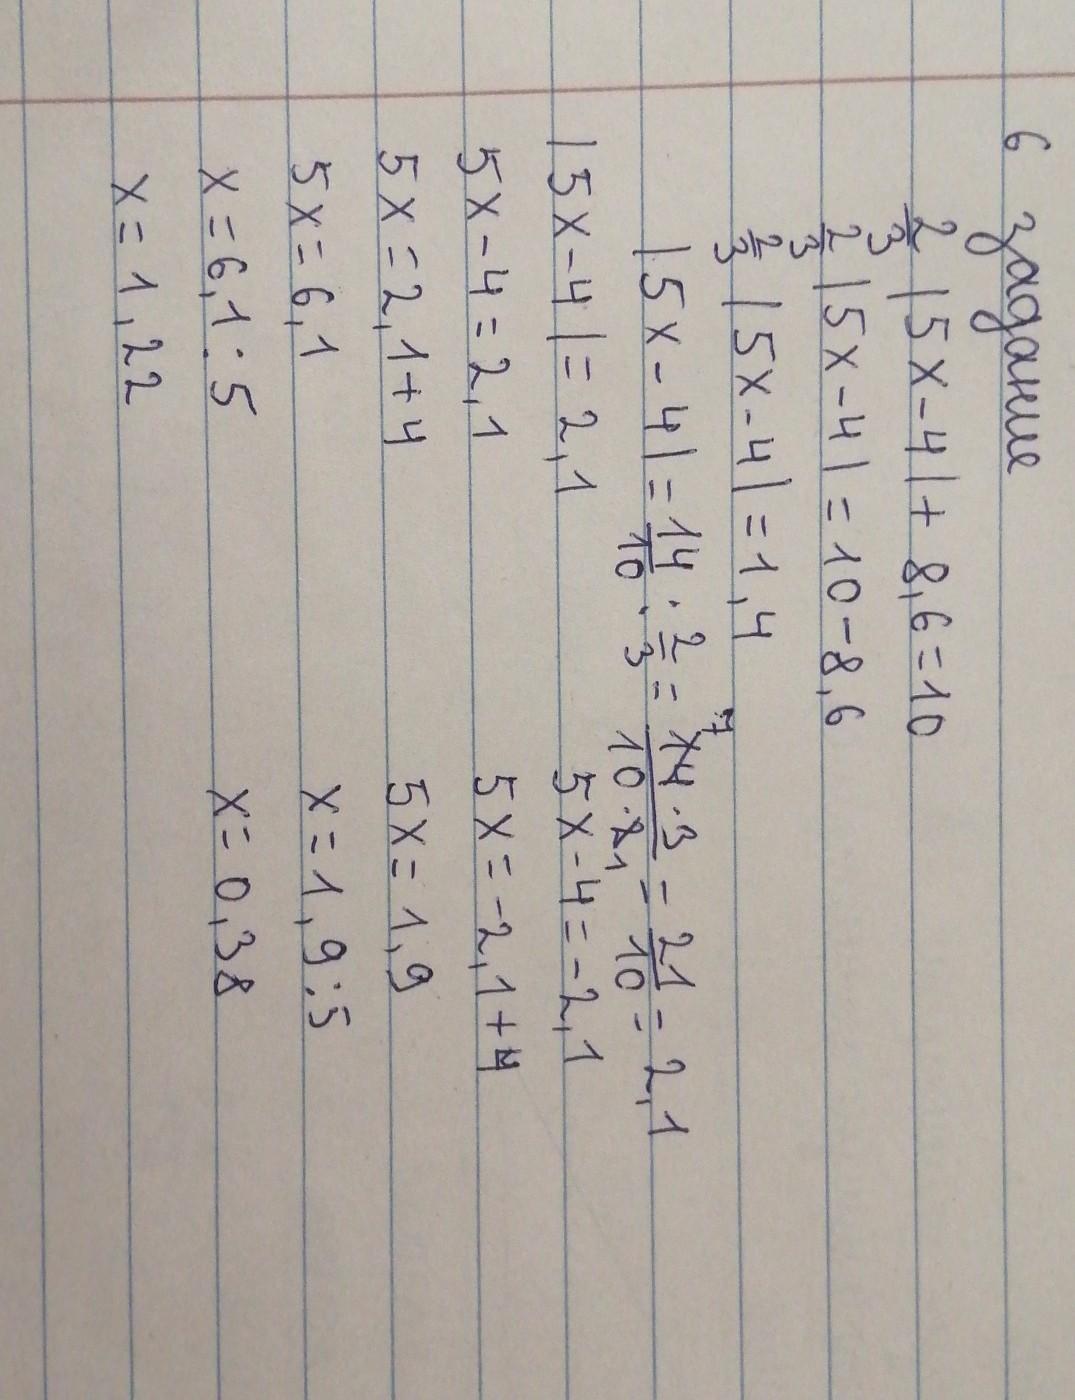 6 задание
2/3 |5x-4|+ 8,6=10
2/3 |5x-4|=10-8,6
2/3 |5x-4|=1,4
|5x-4|=14/10 · 2/3 = 14·3/10·2 7 1 - 21/10 = 2,1
|5x-4|=2,1
5x-4=2,1 5x-4=-2,1
5x=2,1+4 5x=-2,1+4
5x=6,1 5x=1,9
x=6,1:5 x=1,9:5
x=1,22 x=0,38